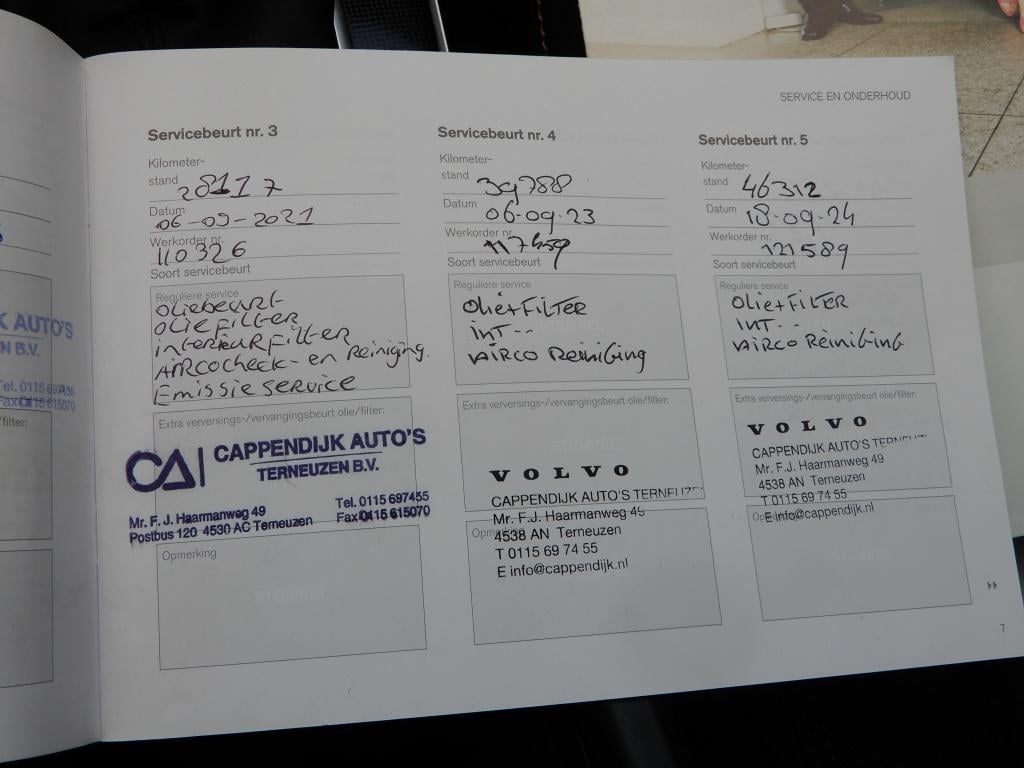 SERVICE EN ONDERHOUD
Servicebeurt nr. 3
Kilometer-
stand 28117
Datum 06-09-2021
Werkorder nr. 110326
Soort servicebeurt
Reguliere service
OLIEBEURT
OLIE FILTER
interieur Filter
AIRCOCHECK- en Reiniging.
Emissie service
Extra verversings-/vervangingsbeurt olie/filter:
CA CAPPENDIJK AUTO'S
TERNEUZEN B.V.
Mr. F. J. Haarmanweg 49 Tel. 0115 697455
Postbus 120 4530 AC Terneuzen Fax 0115 615070
Opmerking
STEMPEL
Servicebeurt nr. 4
Kilometer-
stand 39788
Datum 06-09-23
Werkorder nr.
Soort servicebeurt
Reguliere service
OLIE+FILTER
INT--
AIRCO Reiniging
Extra verversings-/vervangingsbeurt olie/filter:
STEMPEL
VOLVO
CAPPENDIJK AUTO'S TERNEUZEN
Mr. F.J. Haarmanweg 49
4538 AN Terneuzen
T 0115 69 74 55
E info@cappendijk.nl
Servicebeurt nr. 5
Kilometer-
stand 46312
Datum 18-09-24
Werkorder nr. 121589
Soort servicebeurt
Reguliere service
OLIE+FILTER
INT--
AIRCO Reiniging
Extra verversings-/vervangingsbeurt olie/filter:
VOLVO
CAPPENDIJK AUTO'S TERNEUZEN
Mr. F.J. Haarmanweg 49
4538 AN Terneuzen
T 0115 69 74 55
E info@cappendijk.nl
STEMPEL
7
K AUTO'S
N B.V.
Tel. 0115
Fax 0115 615070
/filter: